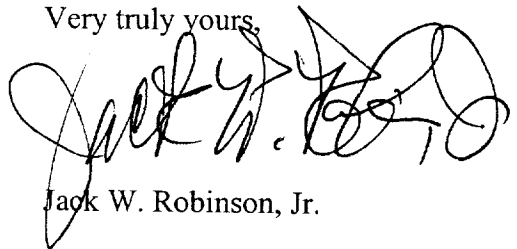 Very truly yours,
Jack W.
Jack W. Robinson, Jr.